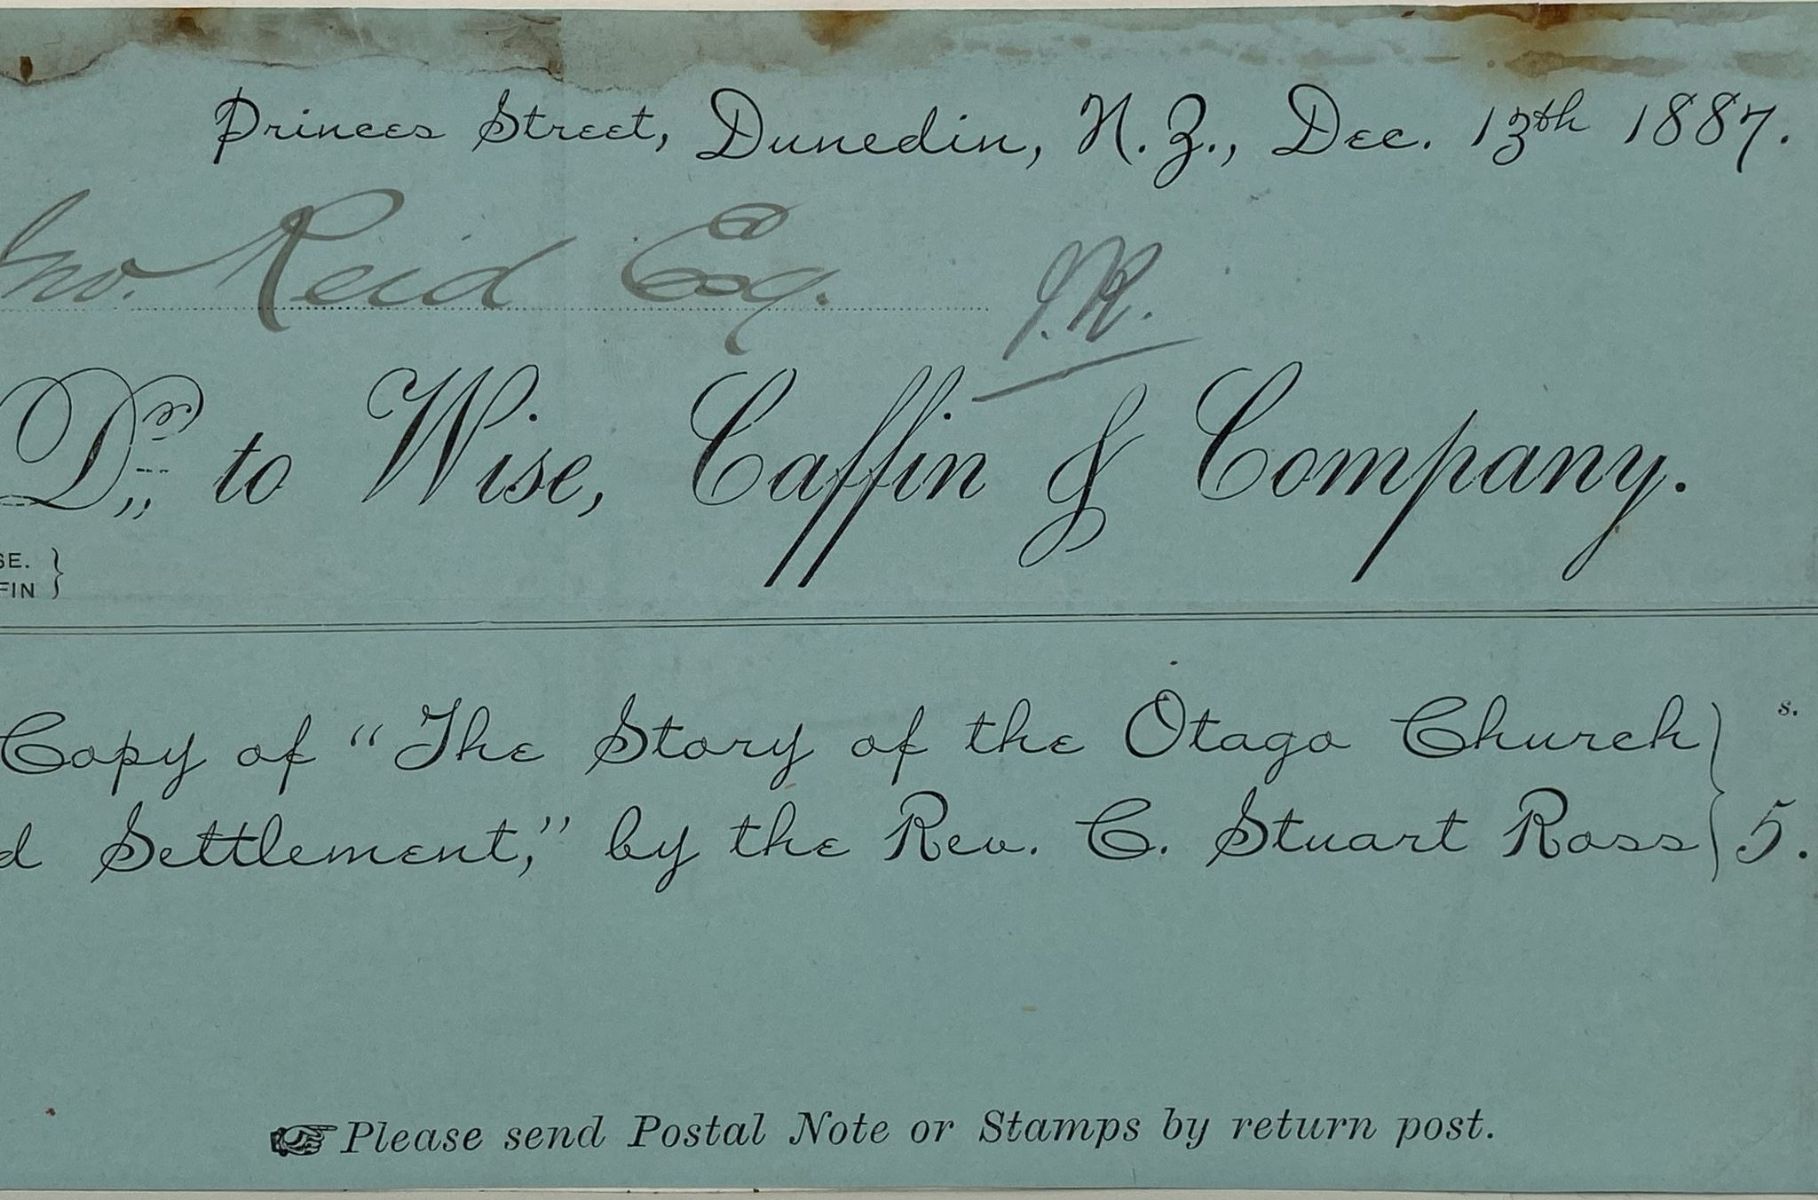 Princes Street, Dunedin, N.Z., Dec. 13th 1887.
Jno. Reid Esq.
J.R.
Dr. to Wise, Caffin & Company.
SE.
FIN
Copy of "The Story of the Otago Church
s.
d Settlement," by the Rev. C. Stuart Ross 5.
☞ Please send Postal Note or Stamps by return post.